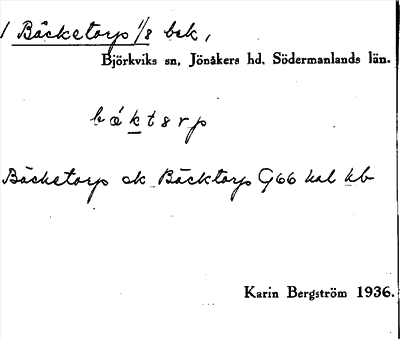 1 Bäcketorp 1/8 bek,
Björkviks sn, Jönåkers hd, Södermanlands län.
bæ´ktɜrp
Bäcketorp ok Bäcktorp G66 kal kb
Karin Bergström 1936.